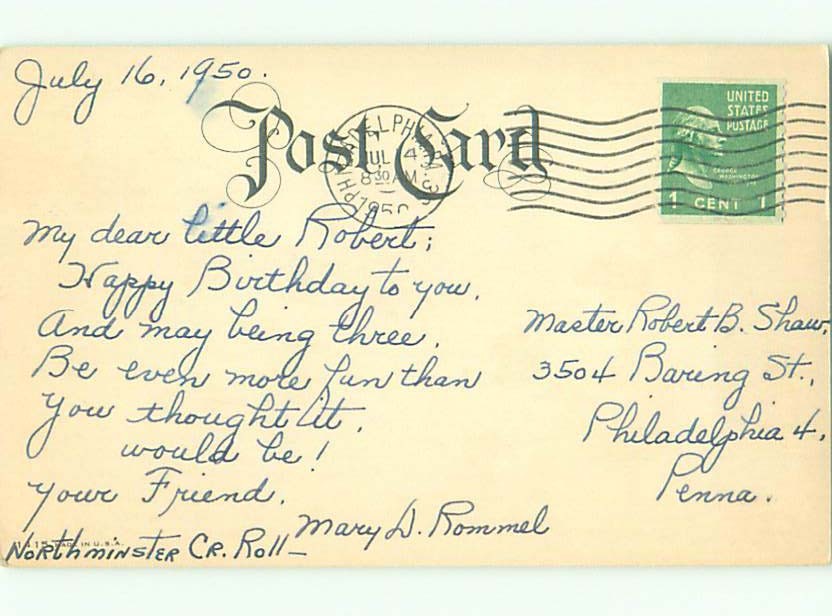 July 16, 1950.
Post Card
PHILADELPHIA
JUL 14
8 30 AM
1950
UNITED
STATES
POSTAGE
GEORGE
WASHINGTON
1 CENT 1
My dear little Robert;
Happy Birthday to you.
And may being three.
Be even more fun than
You thought it,
would be!
Your Friend.
Mary D. Rommel
Northminster Cr. Roll—
Master Robert B. Shaw,
3504 Baring St.,
Philadelphia 4,
Penna.
MADE IN U.S.A.